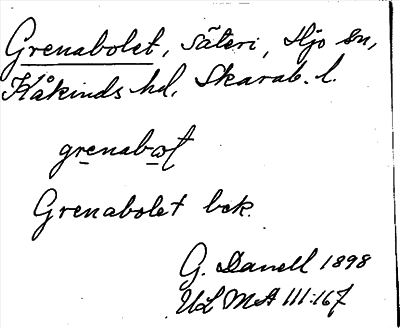 Grenabolet, säteri, Hjo sn,
Kåkinds hd, Skarab. l.
Grenabolet bek.
G. Danell 1898
UL MA III:167